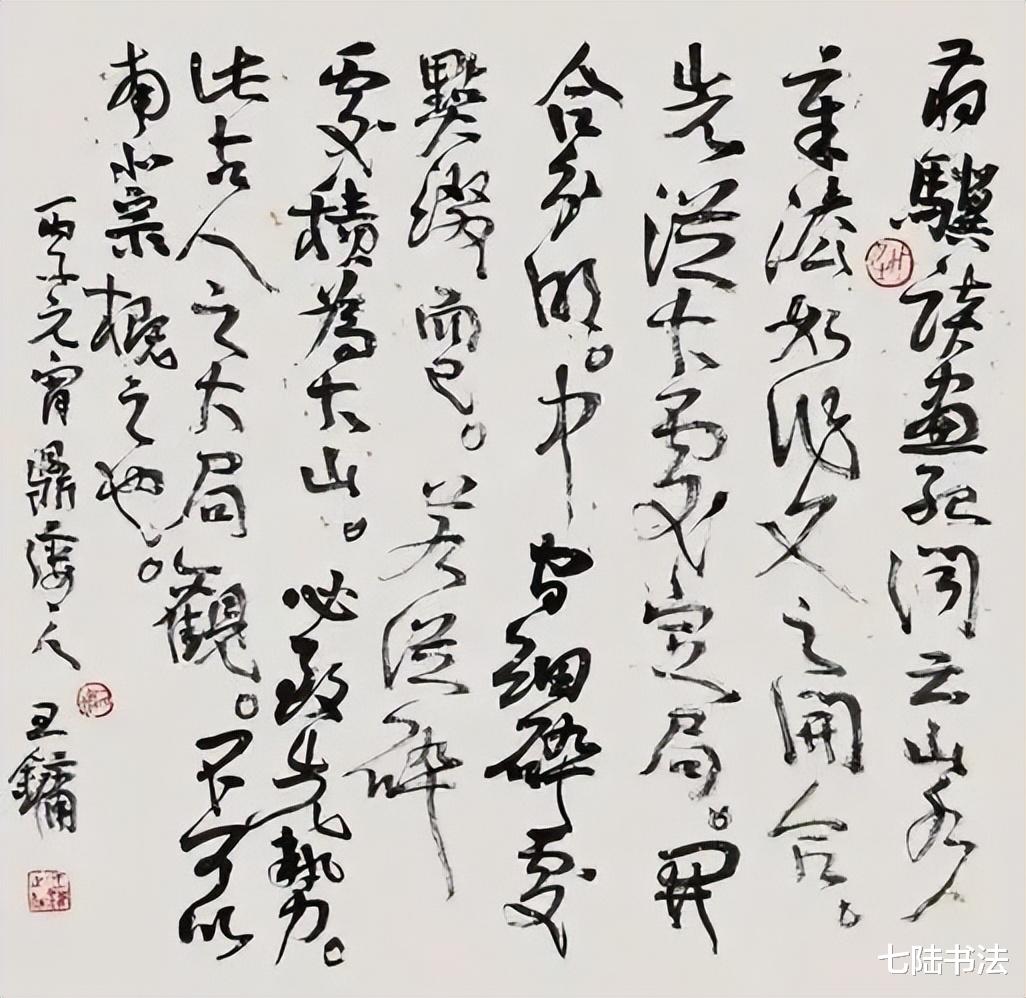 蔣驥讀畫紀聞云山水
章法如作文之開合。
先從大處定局。開
合分明。中間細碎處
點綴而已。若從碎
處積為大山。必致失勢。
此古人之大局觀。不可以
南北宗概之也。
丙子元宵鼎樓主人 王鏞
七陆书法